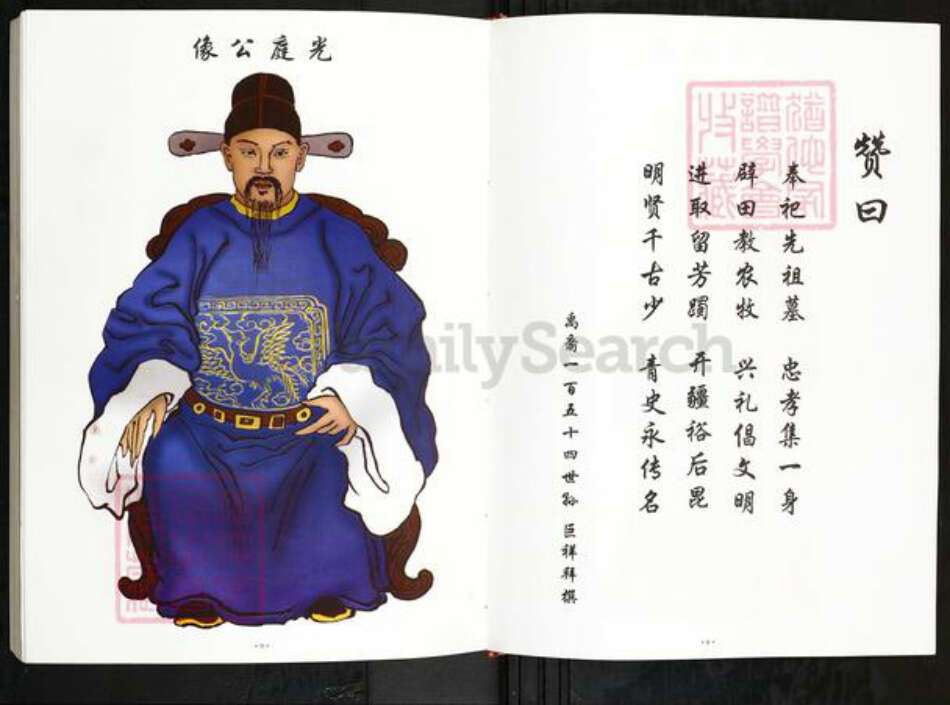 光庭公像
赞曰
奉祀先祖墓 忠孝集一身
辟田教农牧 兴礼倡文明
进取留芳躅 开疆裕后昆
明贤千古少 青史永传名
禹裔一百五十四世孙 巨祥拜撰
FamilySearch